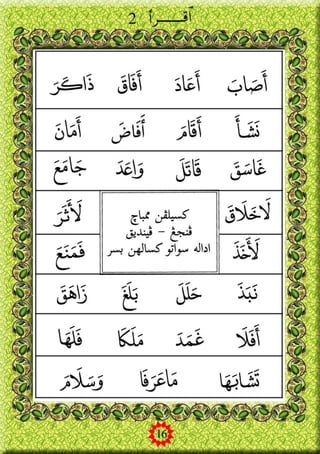 اقــرأ 2
أَصَابَ أَعَادَ أَفَاقَ ذَاكَرَ
نَشَأَ أَقَامَ أَفَاضَ أَمَانَ
غَاسَقَ قَاتَلَ وَاعَدَ جَامَعَ
لَاخَلَاقَ لَأَثَرَ
لَأَخَذَ فَمَنَعَ
كسيلڤن ممباچ
ڤنجڠ - ڤينديق
اداله سواتو كسالهن بسر
نَبَذَ حَلَلَ بَلَغَ زَاهَقَ
أَفَلَا غَمَدَ مَلَكَا فَلَهَا
تَشَابَهَا مَاعَرَفَا وَسَلَامَ
16